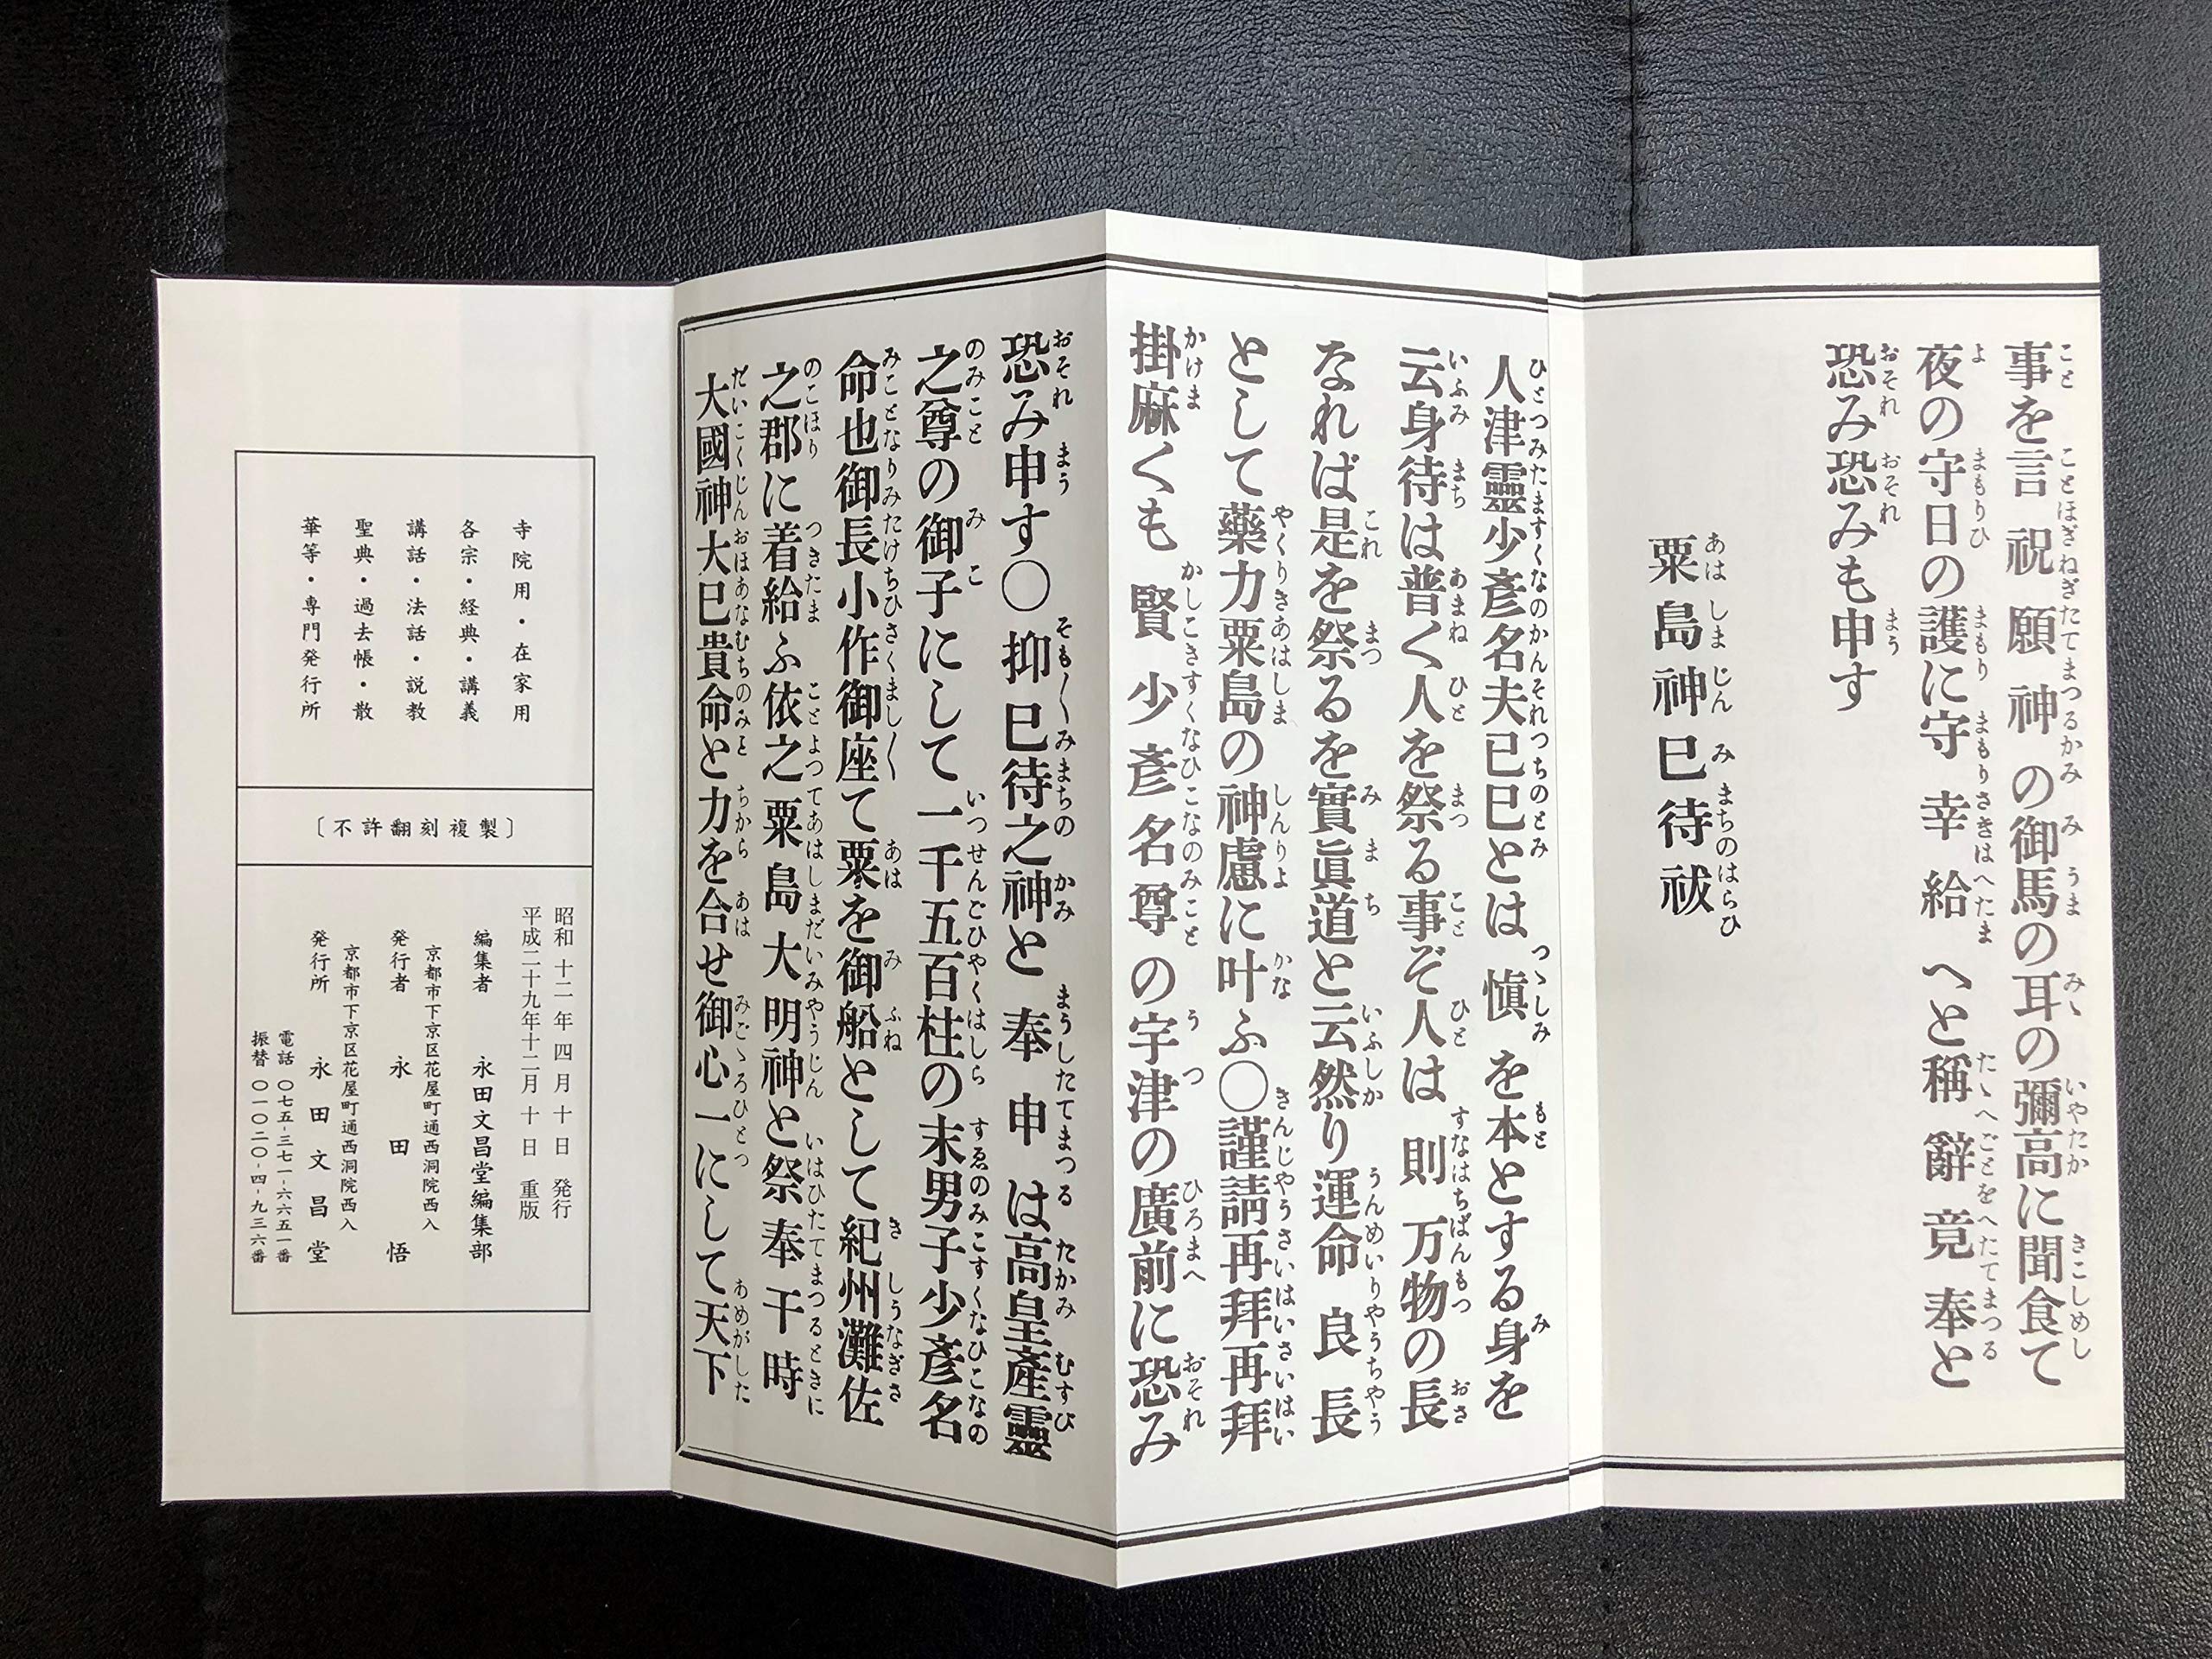 事を言祝願神の御馬の耳の彌高に聞食て
夜の守日の護に守幸給へと稱辭竟奉と
恐み恐みも申す
粟島神巳待祓
人津靈少彥名夫巳巳とは愼を本とする身を
云身待は普く人を祭る事ぞ人は則万物の長
なれば是を祭るを實眞道と云然り運命良長
として藥力粟島の神慮に叶ふ〇謹請再拜再拜
掛麻くも賢少彥名尊の宇津の廣前に恐み
恐み申す〇抑巳待之神と奉申は高皇產靈
之尊の御子にして一千五百柱の末男子少彥名
命也御長小作御座て粟を御船として紀州灘佐
之郡に着給ふ依之粟島大明神と祭奉干時
大國神大巳貴命と力を合せ御心一にして天下
寺院用・在家用
各宗・経典・講義
講話・法話・説教
聖典・過去帳・散
華等・専門発行所
〔不許翻刻複製〕
昭和十二年四月十日 発行
平成二十九年十二月十日 重版
編集者 永田文昌堂編集部
京都市下京区花屋町通西洞院西入
発行者 永田悟
京都市下京区花屋町通西洞院西入
発行所 永田文昌堂
電話 〇七五-三七一-六六五一番
振替 〇一〇二〇-四-九三六番